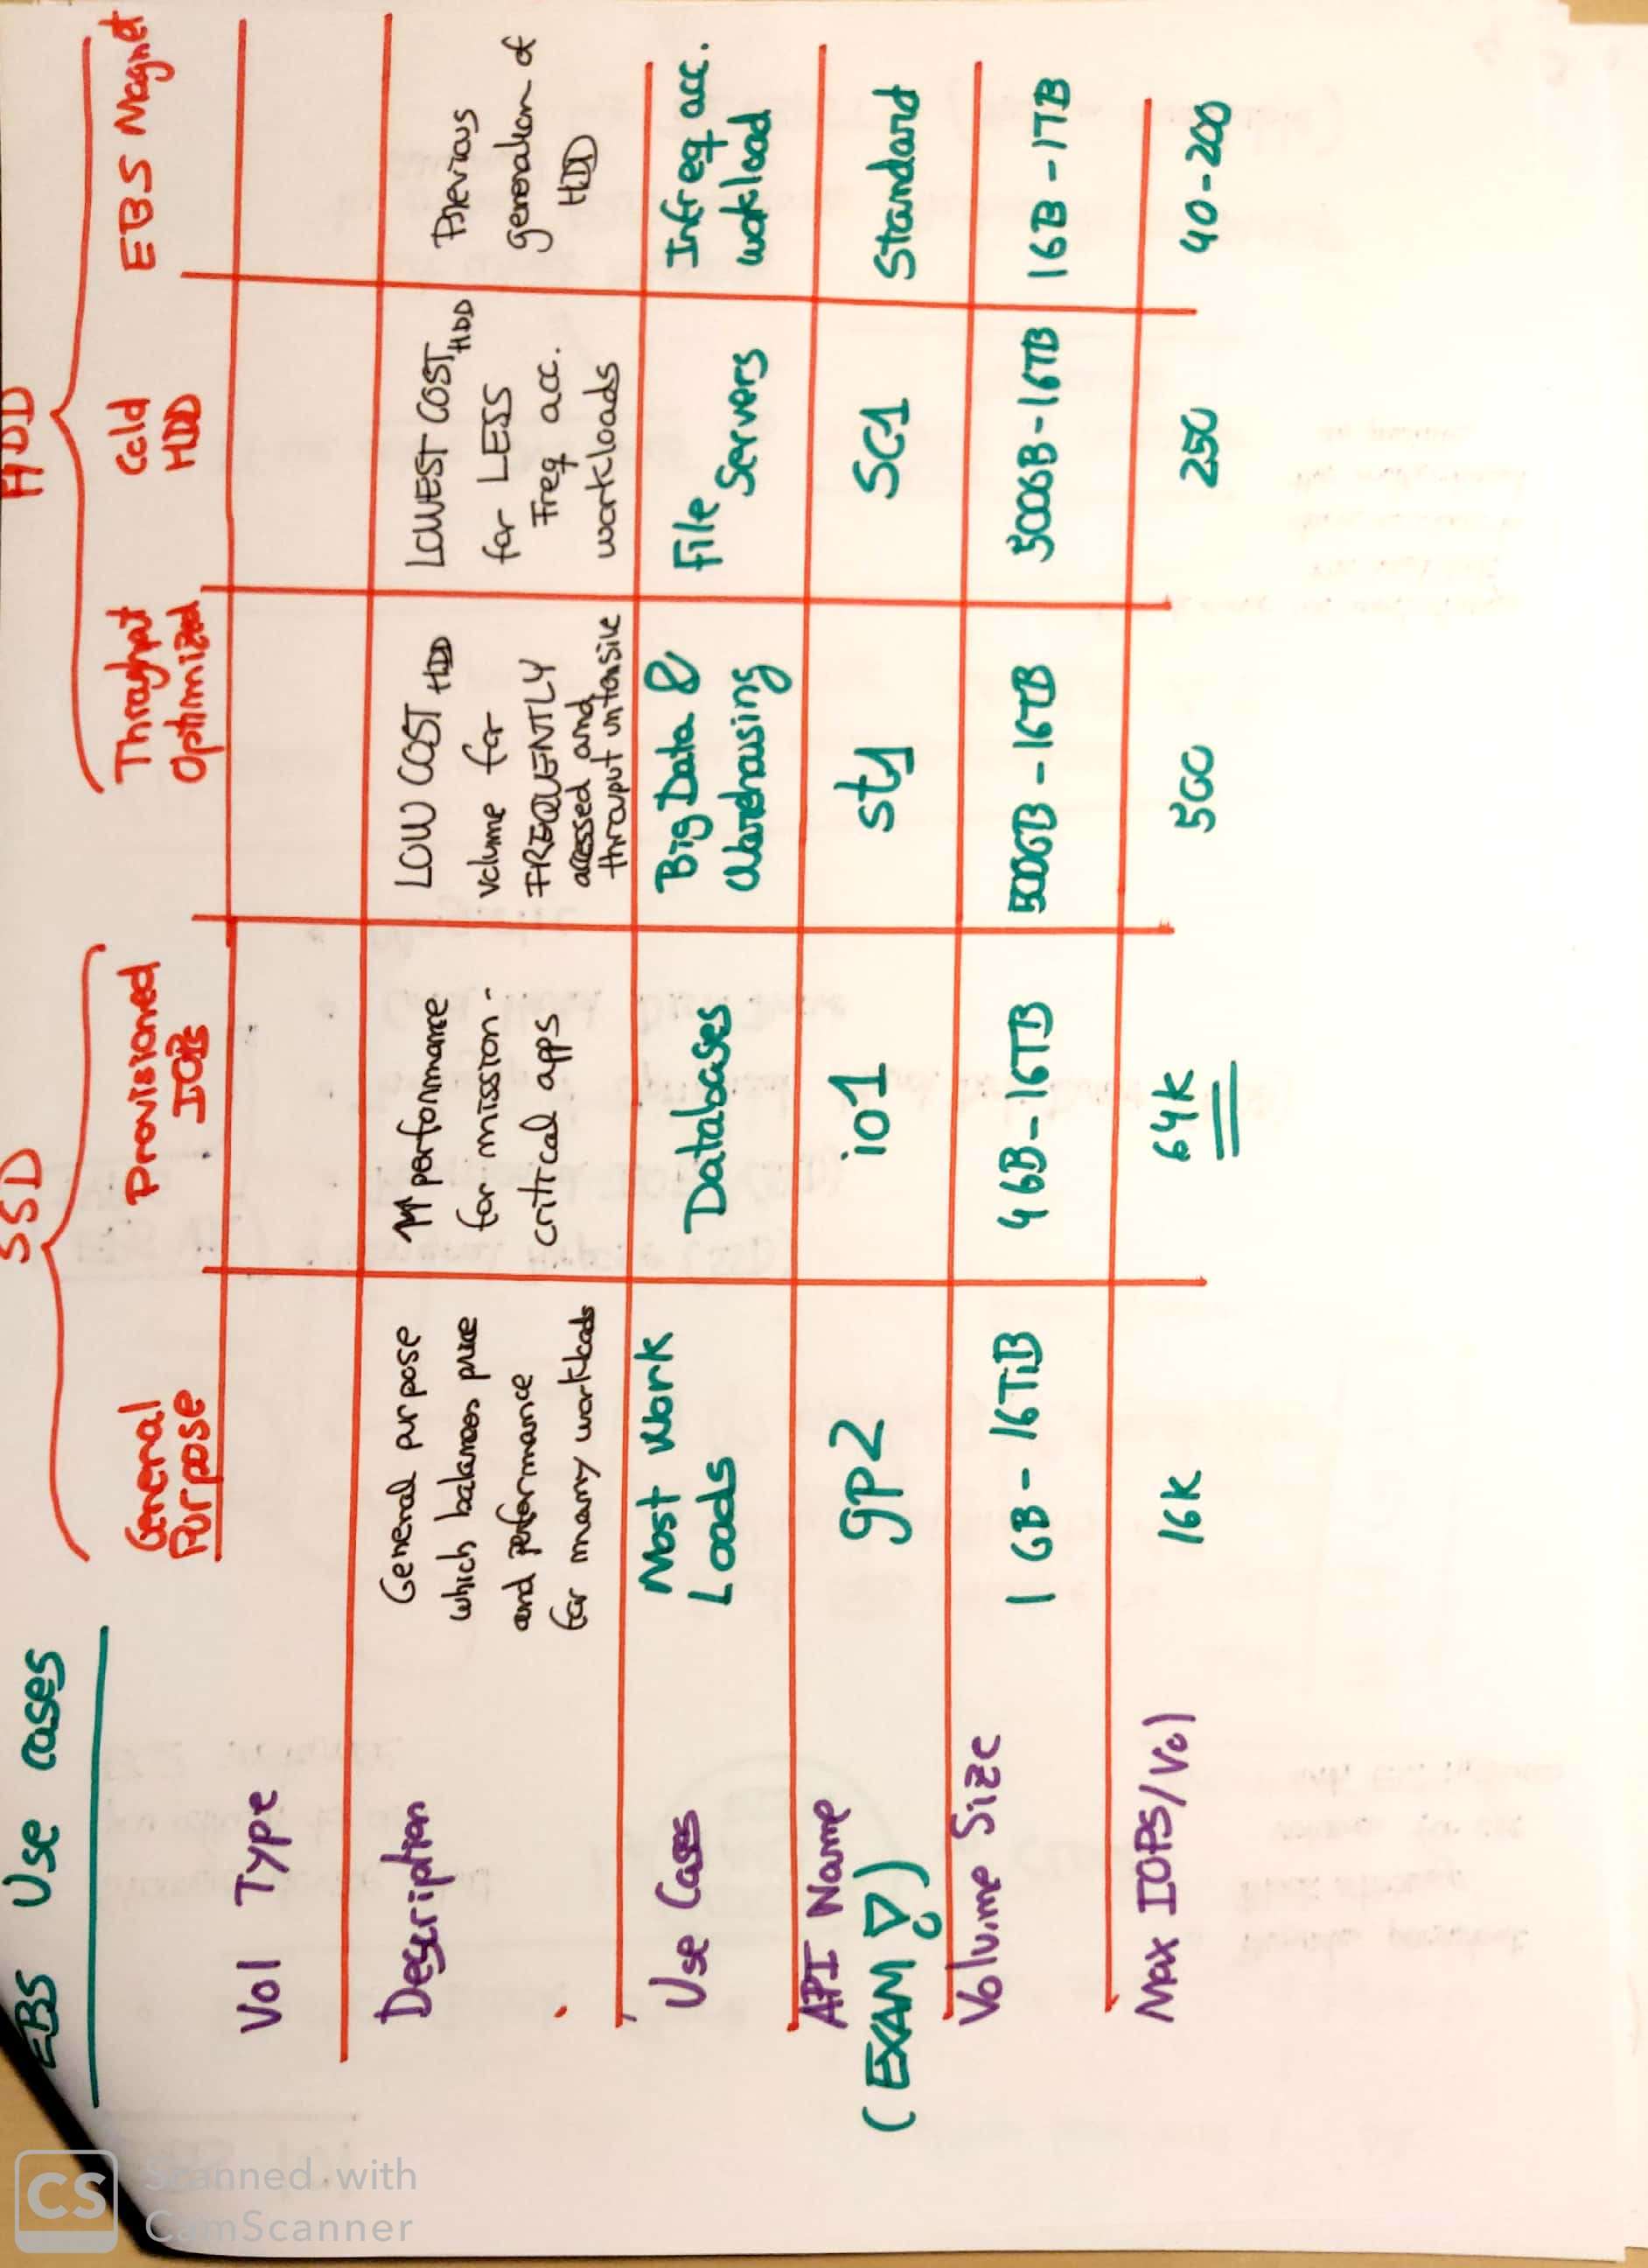 EBS Use cases
SSD
HDD
General
Purpose
Provisioned
IOPS
Throughput
Optimized
Cold
HDD
EBS Magnet
Vol Type
Description
General purpose
which balances price
and performance
for many workloads
↑↑ performance
for mission-
critical apps
LOW COST HDD
volume for
FREQUENTLY
accessed and
throuput intensive
LOWEST COST HDD
for LESS
Freq acc.
workloads
Previous
generation of
HDD
Use Cases
Most Work
Loads
Databases
Big Data &
Warehousing
File
Servers
Infreq acc.
wokload
API Name
(EXAM)
gp2
io1
st1
SC1
Standard
Volume Size
1 GB - 16TiB
4 GB - 16TB
500GB - 16TB
500GB - 16TB
1GB - 1TB
Max IOPS/Vol
16K
64K
500
250
40-200
CS
Scanned with
CamScanner